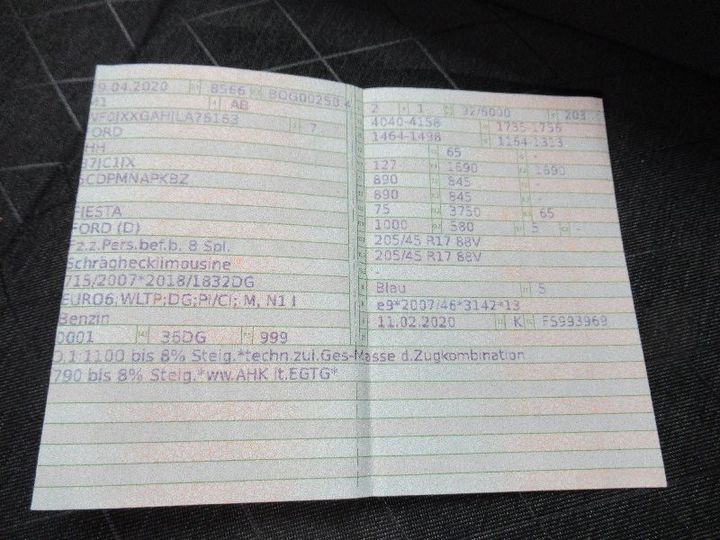 9.04.2020 8566 BOG00250 4
AB
7
FORD
HH
FIESTA
FORD (D)
Fz.z.Pers.bef.b. 8 Spl.
Schräghecklimousine
715/2007*2018/1832DG
EURO6;WLTP;DG;PI/CI; M, N1 I
Benzin
0001 36DG 999
O.1:1100 bis 8% Steig.*techn.zul.Ges-Masse d.Zugkombination
790 bis 8% Steig.*ww.AHK lt.EGTG*
2 1 92/6000 203
4040-4158 1735-1756
1464-1498 1164-1313
65 -
127 1690 1690
890 845 -
890 845 -
75 3750 65
1000 580 5 -
205/45 R17 88V
205/45 R17 88V
-
Blau 5
e9*2007/46*3142*13
11.02.2020 K FS993969